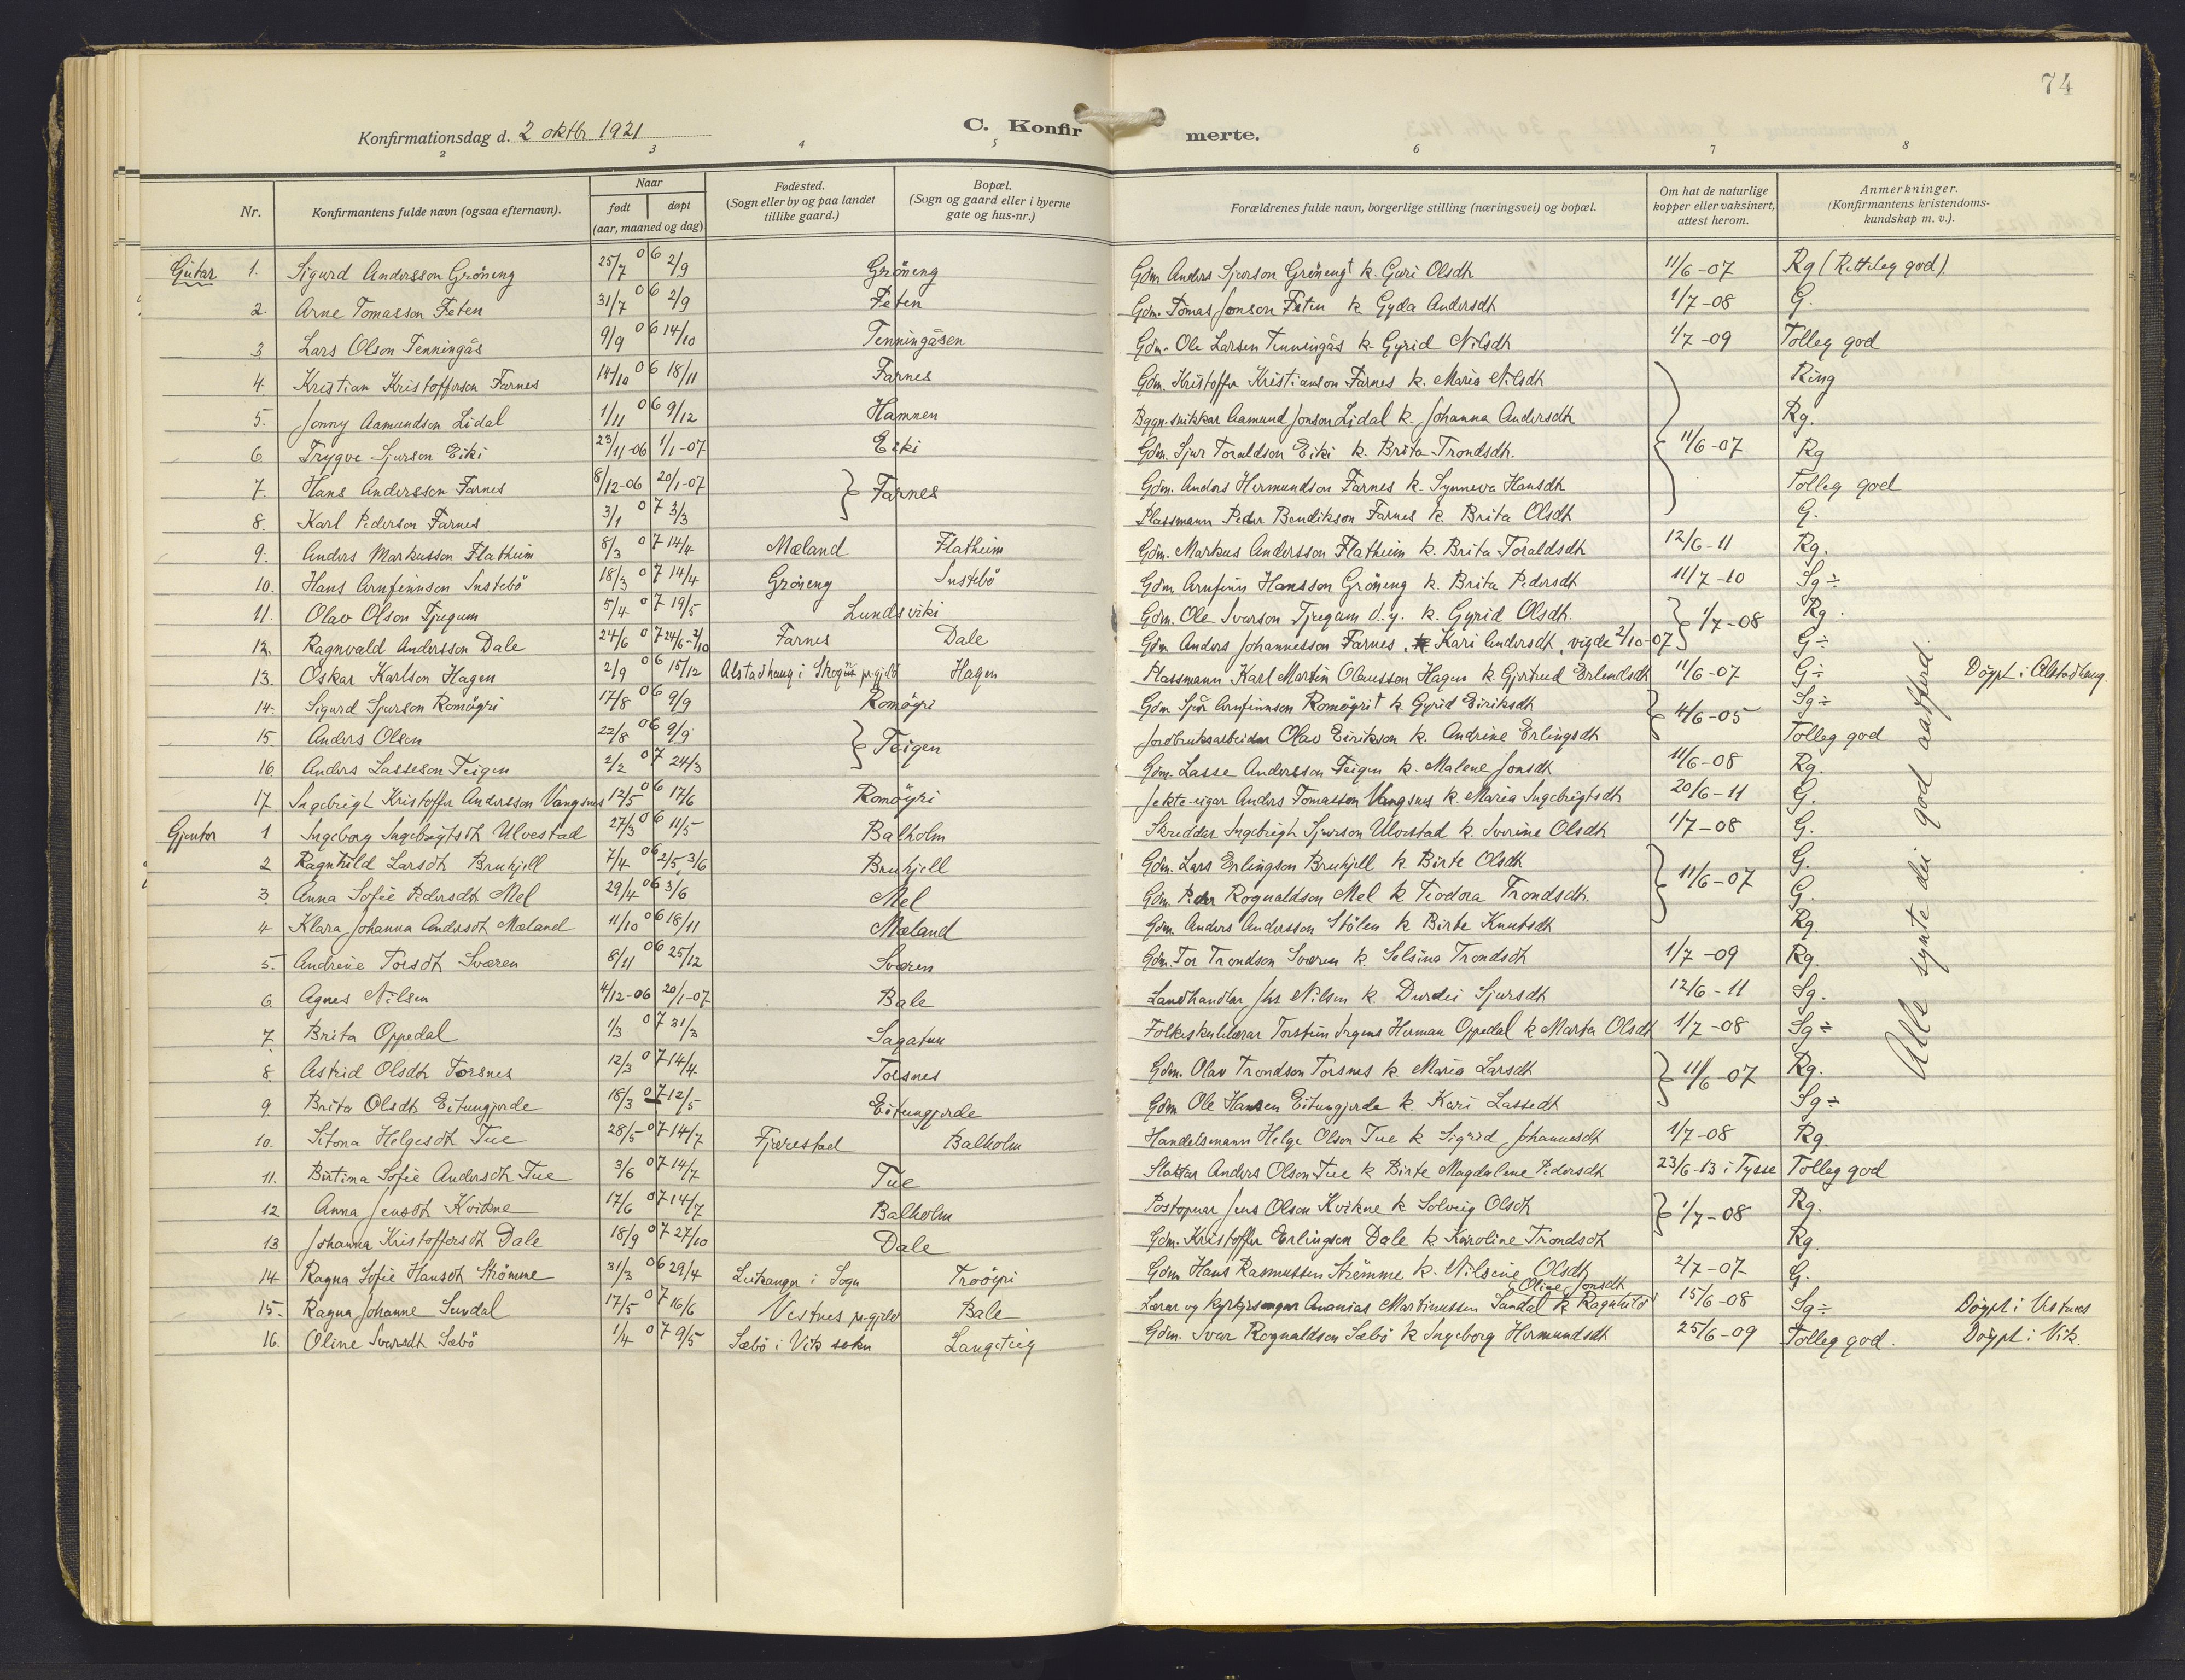 74
Konfirmationsdag d. 2 oktbr 1921
C. Konfirmerte.
2 3 4 5 6 7 8
Nr. Konfirmantens fulde navn (ogsaa efternavn). Naar født døpt (aar, maaned og dag) Fødested. (Sogn eller by og paa landet tillike gaard.) Bopæl. (Sogn og gaard eller i byerne gate og hus-nr.) Forældrenes fulde navn, borgerlige stilling (næringsvei) og bopæl. Om hat de naturlige kopper eller vaksinert, attest herom. Anmerkninger. (Konfirmantens kristendomskundskap m. v.).
Gutar 1. Sigurd Andersson Gröneng 25/7 06 2/9 Gröneng Gdm. Anders Sjurson Gröneng† k. Guri Olsdtr 11/6-07 Rg (Retteleg god).
2. Arne Tomasson Feten 31/7 06 2/9 Feten Gdm. Tomas Jonson Feten k Gyda Andersdtr 1/7-08 G.
3 Lars Olson Tenningås 9/9 06 14/10 Tenningåsen Gdm. Ole Larsen Tenningås k. Gyrid Nilsdtr 1/7-09 Tolleg god
4. Kristian Kristofferson Farnes 14/10 06 18/11 Farnes Gdm. Kristoffer Kristianson Farnes k. Maria Nilsdtr Ring
5. Jonny Aamundson Lidal 1/11 06 9/12 Hamnen Bygn.snikkar Aamund Jonson Lidal k. Johanna Andersdtr Rg.
6. Trygve Sjurson Eiki 23/11-06 1/1-07 Eiki Gdm. Sjur Toraldson Eiki k. Brita Trondsdtr. } 11/6-07 Rg
7. Hans Andersson Farnes 8/12-06 20/1-07 } Farnes Gdm. Anders Hermundson Farnes k. Synneva Hansdtr Tolleg god
8. Karl Pederson Farnes 3/1 07 3/3 Plassmann Peder Bendikson Farnes k. Brita Olsdtr G.
9. Anders Markusson Flatheim 8/3 07 14/4 Mæland Flatheim Gdm. Markus Andersson Flatheim k. Brita Toraldsdtr 12/6-11 Rg.
10. Hans Arnfinnson Instebö 18/3 07 14/4 Gröneng Instebö Gdm. Arnfinn Hansson Gröneng k. Brita Pedersdtr 11/7-10 Sg÷
11. Olav Olson Tjugum 5/4 07 19/5 Lundsviki Gdm. Ole Ivarson Tjugum d.y. k. Gyrid Olsdtr. } 1/7-08 Rg.
12. Ragnvald Andersson Dale 24/6 07 24/6-2/10 Farnes Dale Gdm Anders Johannesson Farnes, k Kari Andersdtr, vigde 2/10-07 G÷
13. Oskar Karlson Hagen 2/9 06 15/12 Alstadhaug i Skogn pr.gjeld Hagen Plassmann Karl Martin Olausson Hagen k. Gjertrud Erlendsdtr 11/6-07 G÷ Döypt i Alstadhaug.
14. Sigurd Sjurson Romöyri 17/8 06 9/9 Romöyri Gdm. Sjur Arnfinnson Romöyri† k. Gyrid Eiriksdtr } 4/6-05 Sg÷
15. Anders Olsen 22/8 06 9/9 } Teigen Jordbruksarbeidar Olav Eirikson k. Andrine Erlingsdtr Tolleg god
16. Anders Lasseson Teigen 2/2 07 24/3 Gdm. Lasse Andersson Teigen k. Malene Jonsdtr 11/6-08 Rg.
17. Ingebrigt Kristoffer Andersson Vangsnes 12/5 06 17/6 Romöyri Jekte-eigar Anders Tomasson Vangsnes k. Maria Ingebrigtsdtr 20/6-11 G.
Gjentor 1 Ingeborg Ingebrigtsdt Ulvestad 27/3 06 11/5 Balholm Skreddar Ingebrigt Sjurson Ulvestad k. Iverine Olsdtr 1/7-08 G.
2 Ragnhild Larsdtr Bruhjell 7/4 06 2/5, 3/6 Bruhjell Gdm. Lars Erlingson Bruhjell k. Birte Olsdtr } 11/6-07 G.
3. Anna Sofie Pedersdtr Mel 29/4 06 3/6 Mel Gdm. Peder Rognaldson Mel k Teodora Trondsdtr. G.
4 Klara Johanna Andersdt Mæland 11/10 06 18/11 Mæland Gdm. Anders Andersson Stölen k Birte Knutsdt Rg.
5. Andrine Torsdt Sværen 8/11 06 25/12 Sværen Gdm. Tor Trondson Sværen k. Selsina Trondsdt 1/7-09 Rg.
6. Agnes Nilsen 4/12-06 20/1-07 Bale Landhandlar Jhs Nilsen k. Durdei Sjursdt 12/6-11 Sg.
7. Brita Oppedal 1/3 07 31/3 Sagatun Folkeskulelærar Torstein Jrgens Herman Oppedal k Marta Olsdt 1/7-08 Sg÷
8. Astrid Olsdtr Torsnes 12/3 07 14/4 Torsnes Gdm. Olav Trondson Torsnes k. Maria Larsdt } 11/6-07 Rg.
9. Brita Olsdtr Eitungjerde 18/3 07 12/5 Eitungjerde Gdm Ole Hansen Eitungjerde k. Kari Lassedt Sg÷
10. Sitona Helgesdt Tue 28/5 07 14/7 Fjærestad Balholm Handelsmann Helge Olson Tue k Sigrid Johannesdt 1/7-08 Rg.
11. Birtina Sofie Andersdtr Tue 3/6 07 14/7 Tue Slaktar Anders Olson Tue k Birte Magdalene Pedersdt 23/6-13 i Tysse Tolleg god
12 Anna Jensdt Kvikne 17/6 07 14/7 Balholm Postopnar Jens Olson Kvikne k Solveig Olsdt } 1/7-08 Rg.
13 Johanna Kristoffersdt Dale 18/9 07 27/10 Dale Gdm. Kristoffer Erlingson Dale k Karoline Trondsdt Rg.
14 Ragna Sofie Hansdt Strömme 31/3 06 29/4 Leikanger i Sogn Troöyri Gdm Hans Rasmussen Strömme k. Nilsine Olsdt 2/7-07 G.
15. Ragna Johanne Sundal 17/5 07 16/6 Vestnes pr.gjeld Bale Lærar og kyrkjesongar Ananias Martinussen Sundal k Ragnhild Oline Jonsdt 15/6-08 Sg÷ Döypt i Vestnes
16. Oline Ivarsdt Sæbö 1/4 07 9/5 Sæbö i Vik sokn Langeteig Gdm. Ivar Rognaldson Sæbö k Ingeborg Hermundsdt 25/6-09 Tolleg god. Döypt i Vik.
Alle synte dei god aatferd.